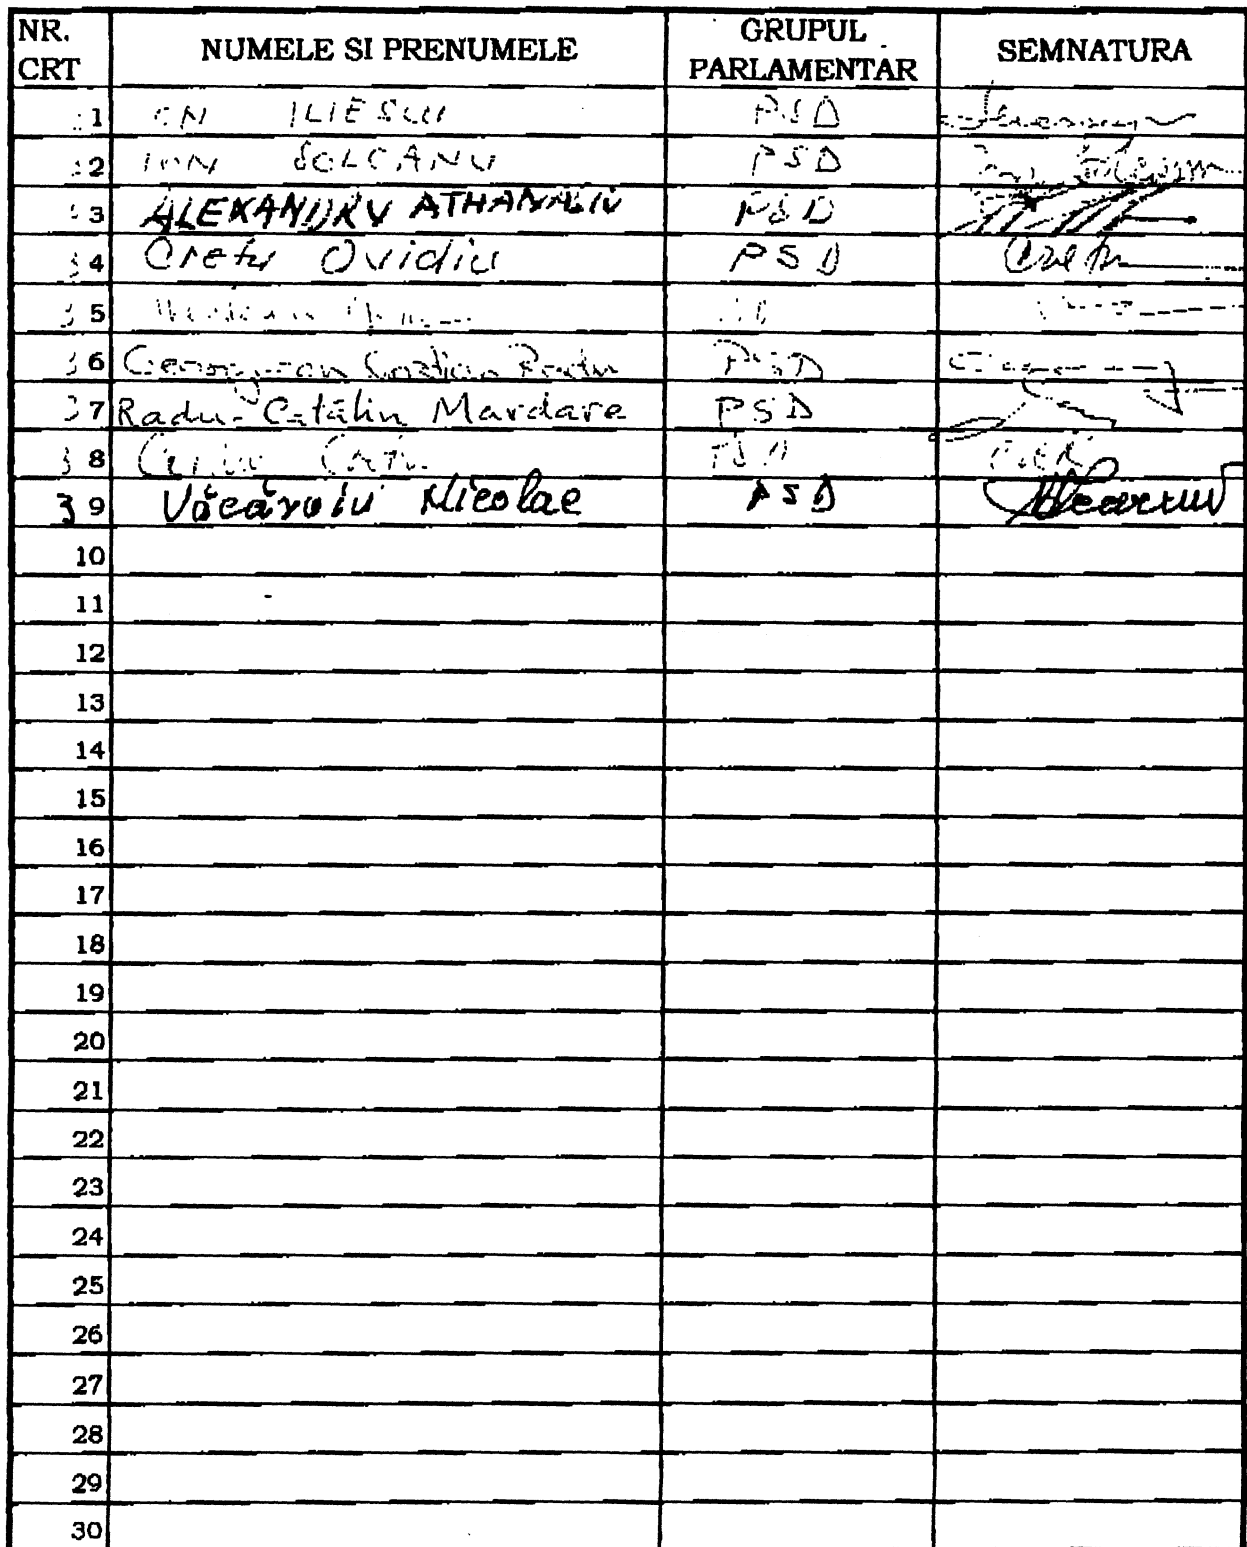 NR. CRT NUMELE SI PRENUMELE GRUPUL PARLAMENTAR SEMNATURA
1 ILIESCU PSD
2 ION SOLCANU PSD
33 ALEXANDRU ATHANASIU PSD
34 Cretu Ovidiu PSD Cretu
35
36 Radu PSD
37 Radu-Cătălin Mardare PSD
38
39 Văcăroiu Nicolae PSD
10
11
12
13
14
15
16
17
18
19
20
21
22
23
24
25
26
27
28
29
30